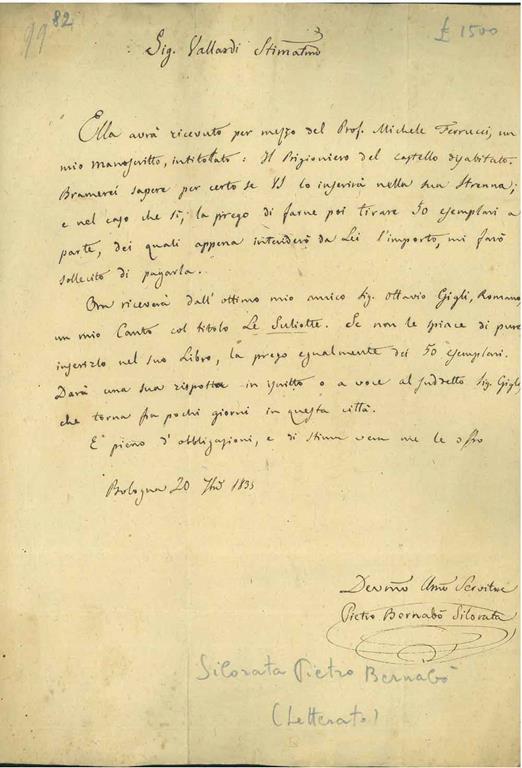 99 82
£ 1500
Sig. Vallardi Stimatmo
Ella avrà ricevuto per mezzo del Prof. Michele Ferrucci, un
mio manoscritto, intitolato: Il Prigioniero del castello disabitato.
Bramerei sapere per certo se VS lo inserirà nella sua Strenna;
e nel caso che sì, la prego di farne poi tirare 50 esemplari a
parte, dei quali appena intenderò da Lei l'importo, mi farò
sollecito di pagarla.
Ora riceverà dall'ottimo mio amico Sig. Ottavio Gigli, Romano,
un mio Canto col titolo Le Suliotte. Se non le spiace di pure
inserirlo nel suo Libro, la prego egualmente dei 50 esemplari.
Darà una sua risposta in iscritto o a voce al suddetto Sig. Gigli
che torna fra pochi giorni in questa città.
E pieno d'obbligazioni, e di stima vera me le offro
Bologna 20 7bre 1835
Devmo Umo Servitore
Pietro Bernabò Silorata
Silorata Pietro Bernabò
(Letterato)